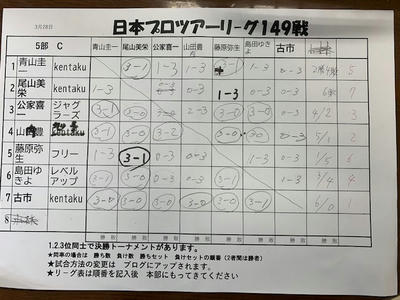 3月28日
日本プロツアーリーグ149戦
5部 C 青山圭一 尾山美栄 公家喜一 山田豊 藤原弥生 島田ゆきよ 古市
1 青山圭一 kentaku 3-1 1-3 1-3 3-1 1-3 0-3 5
2 尾山美栄 kentaku 1-3 0-3 0-3 1-3 0-3 7
3 公家喜一 ジャグラーズ 3-1 3-0 2-3 3-0 3-0 0-3 4/2 3
4 kentaku 3-1 3-0 3-2 3-0 3-0 0-3 5/1 2
5 藤原弥生 フリー 1-3 3-1 0-3 0-3 1-3 0-3 1/5 6
6 島田ゆきよ レベルアップ 3-1 0-3 0-3 3-1 0-3 3/4 4
7 古市 kentaku 3-0 3-0 3-0 3-0 3-0 3-1 6/0 1
8
勝敗 勝敗 勝敗 勝敗 勝敗 勝敗 勝敗 勝敗
1.2.3位同士で決勝トーナメントがあります。
★同率の場合は 勝ち数 負け数 勝ちセット 負けセットの順番(2者間は勝者)
★試合方法の変更は ブログにアップされます。
★リーグ表は順番を記入後 本部にもってきてください